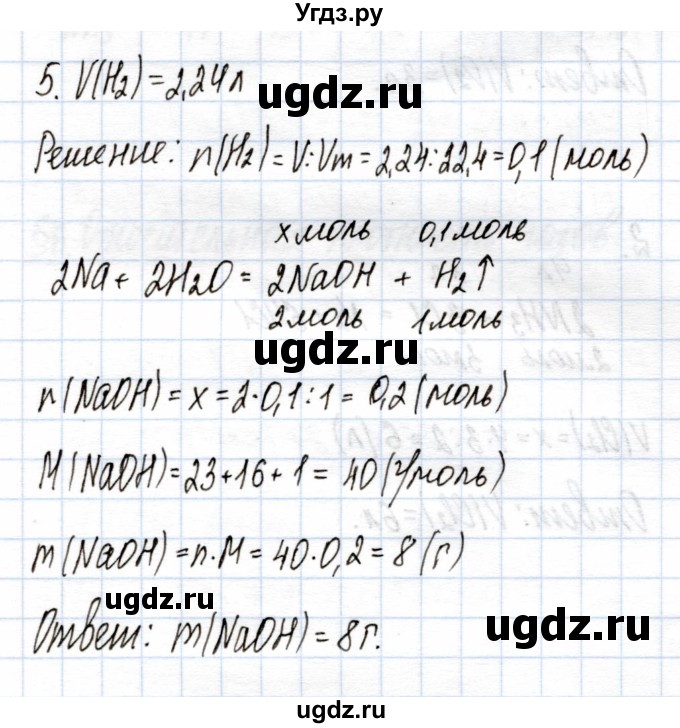 Угдз.ру
5. V(H₂) = 2,24 л
ugdz.ru
Решение: n(H₂) = V:Vm = 2,24:22,4 = 0,1 (моль)
x моль 0,1 моль
2Na + 2H₂O = 2NaOH + H₂↑
2 моль 1 моль
ugdz.ru
n(NaOH) = x = 2·0,1:1 = 0,2 (моль)
M(NaOH) = 23+16+1 = 40 (г/моль)
m(NaOH) = n·M = 40·0,2 = 8 (г)
ugdz.ru
ugdz.ru
Ответ: m(NaOH) = 8 г.
ugdz.ru